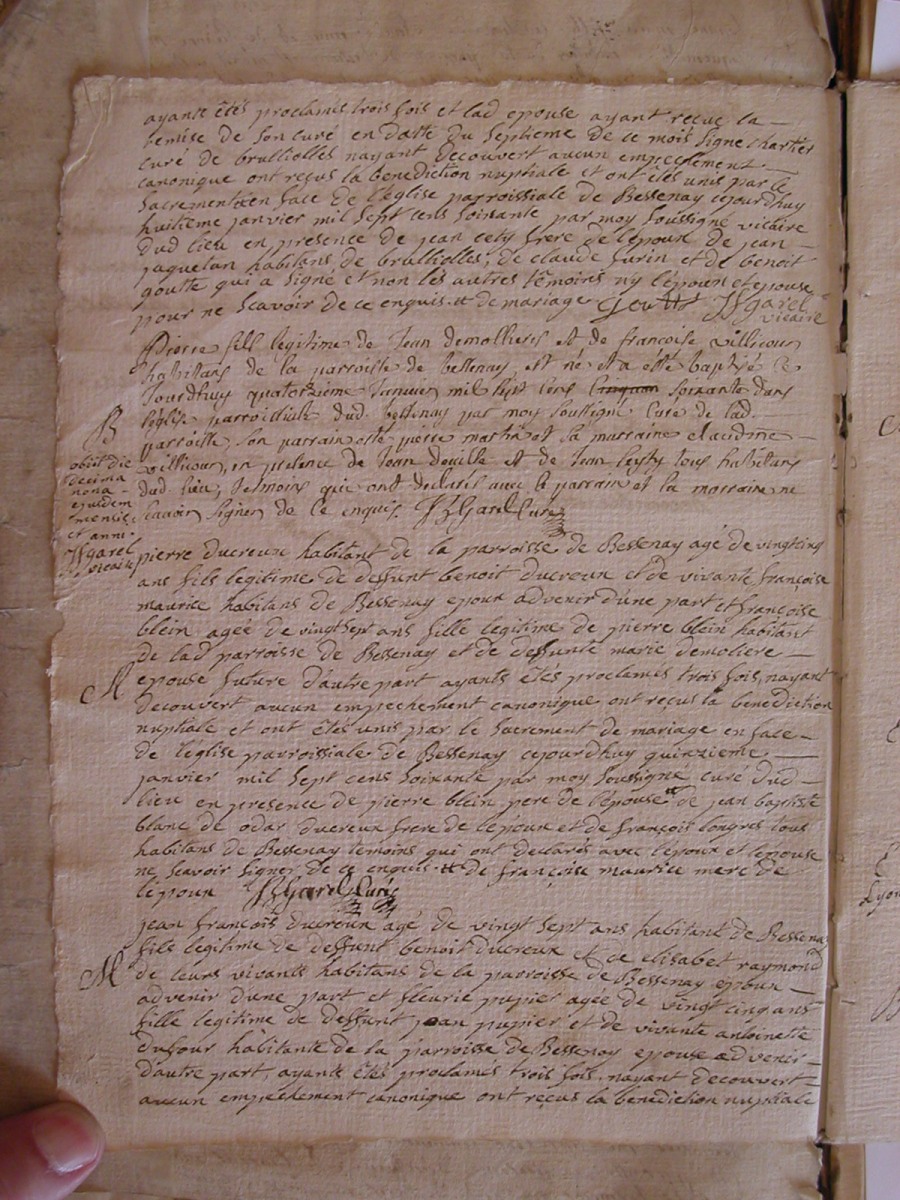 ayants étés proclamés trois fois et lad epouse ayant recue la
remise de son curé en datte du septieme de ce mois signé chartier
curé de brullioles nayant decouvert aucun empechement
canonique ont reçus la benediction nuptiale et ont étés unis par le
sacrement en face de l'eglise parroissiale de Bessenay cejourdhuy
huitieme janvier mil sept cens soixante par moy soussigné vicaire
dud lieu en presence de jean cety frere de l'epoux de jean
jaquetan habitans de brullioles, de claude furin et de benoit
goutte qui a signé et non les autres témoins ny l'epoux et epouse
pour ne scavoir de ce enquis. # de mariage Goutte JJgarel
vicaire
Pierre fils legitime de Jean demollieres et de francoise villicour
habitans de la parroisse de bessenay, est né et a esté baptisé ce
Jourdhuy quatorzieme Janvier mil sept cens cinquan soixante dans
l'eglise parroissialle dud. bessenay par moy soussigné Curé de lad.
B
parroisse, son parrain esté pierre martin et la marraine claudine
villicour, en presence de Jean et de Jean tous habitans
dud. lieu, temoins qui ont declarés avec le parrain et la marraine ne
scavoir signer de ce enquis. Garel Curé
obiit die
decima
nona
ejusdem
mensis
et anni.
JJgarel
vicaire
pierre ducreux habitant de la parroisse de Bessenay agé de vingt cinq
ans fils legitime de deffunt benoit ducreux et de vivante françoise
maurice habitans de Bessenay epoux advenir d'une part et françoise
blein agée de vingt sept ans fille legitime de pierre blein habitant
de lad parroisse de Bessenay et de deffunte marie demoliere
M
epouse future d'autre part ayants étés proclamés trois fois, nayant
decouvert aucun empechement canonique ont reçus la benediction
nuptiale et ont étés unis par le sacrement de mariage en face
de l'eglise parroissiale de Bessenay cejourdhuy quinzieme
janvier mil sept cens soixante par moy soussigné curé dud
lieu en presence de pierre blein pere de l'epouse # de jean baptiste
blanc de odar ducreux frere de l'epoux et de françois longres tous
habitans de Bessenay temoins qui ont declarés avec l'epoux et lepouse
ne scavoir signer de ce enquis # de françoise maurice mere de
l'epoux Garel Curé
jean françois ducreux agé de vingt sept ans habitant de Bessenay
M
fils legitime de deffunt benoit ducreux & de elisabet raymond
de leurs vivants habitans de la parroisse de Bessenay epoux
advenir d'une part et fleurie pupier agée de vingt cinq ans
fille legitime de deffunt jean pupier et de vivante antoinette
dufour habitante de la parroisse de Bessenay epouse advenir
d'autre part, ayants étés proclamés trois fois. nayant decouvert
aucun empechement canonique ont reçus la benediction nuptiale
Lyon